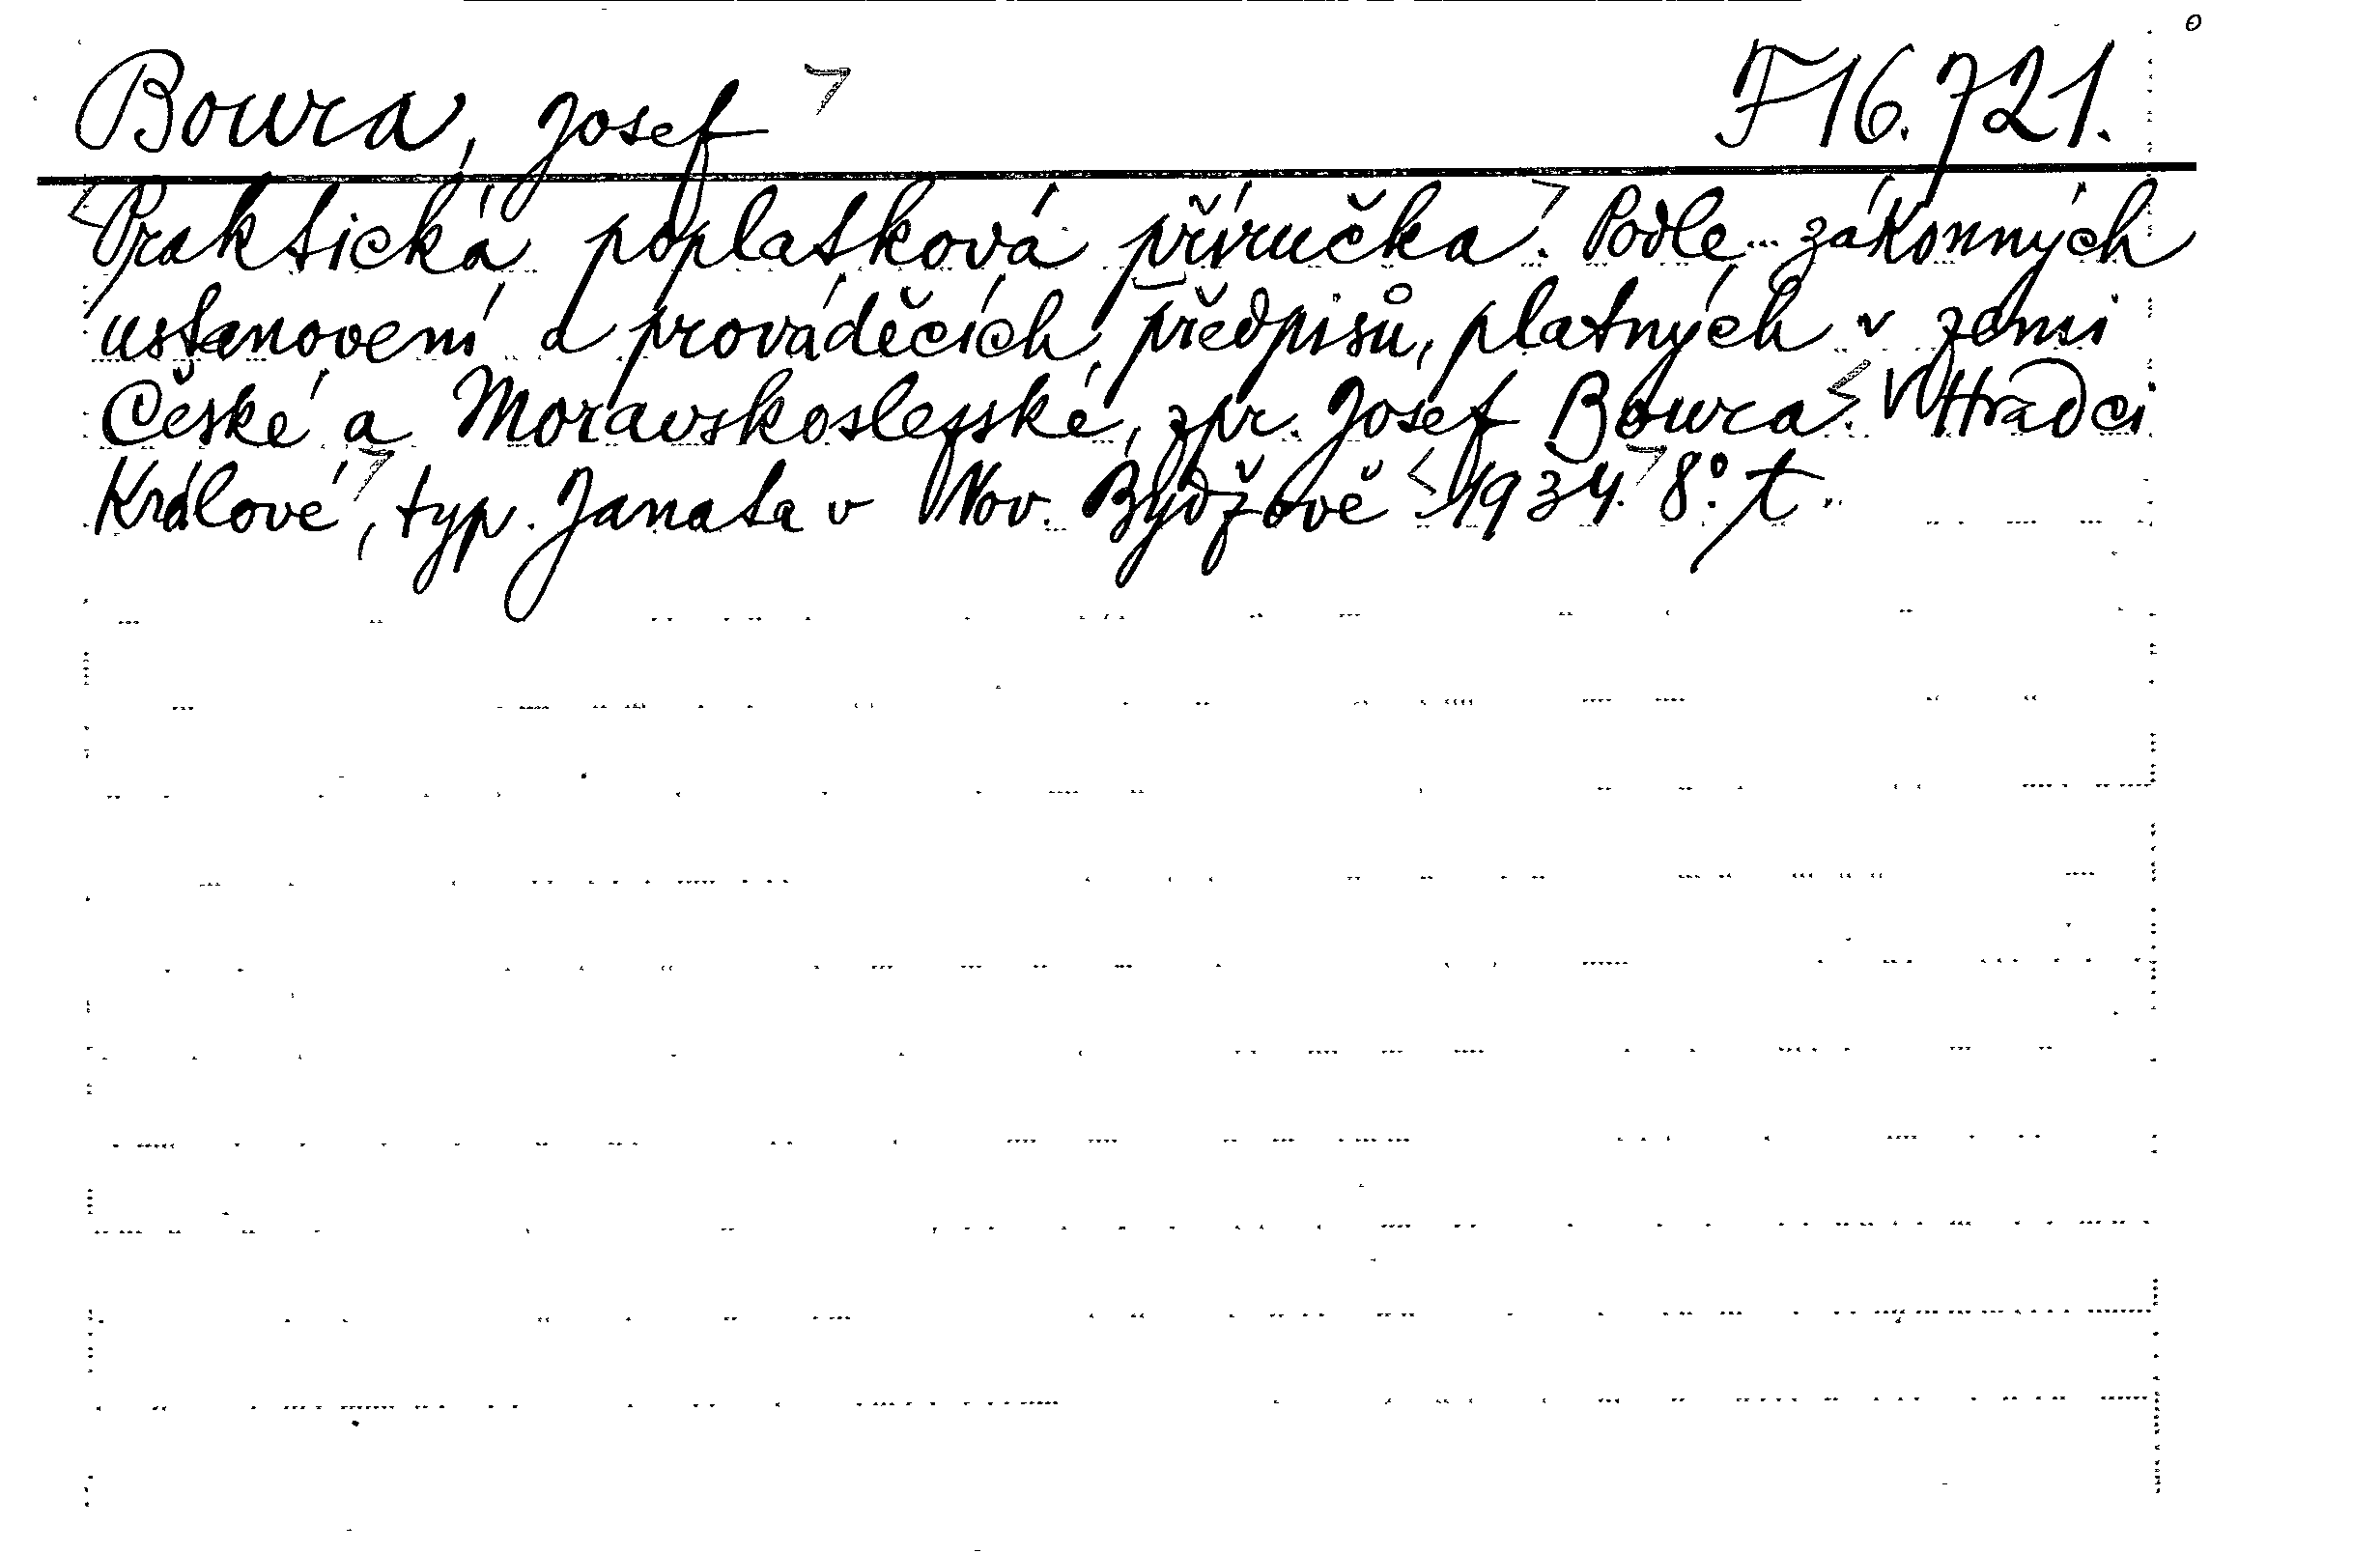 Boura, Josef F 16.721.
Praktická poplatková příručka. Podle... zákonných
ustanovení a prováděcích předpisů, platných v zemi
České a Moravskoslezské, zpr. Josef Boura. V Hradci
Králové, typ. Janata v Nov. Bydžově 1934. 8°. t.